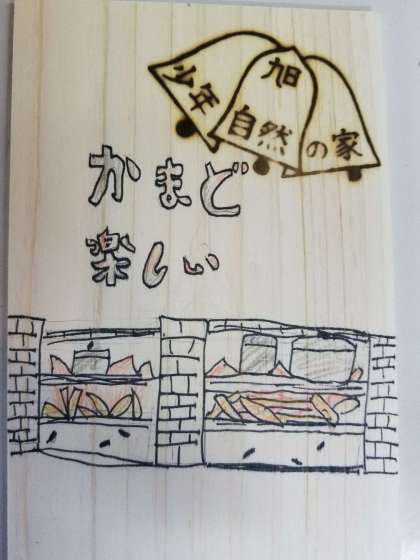 旭
少年
自然
の家
かまど
楽しい